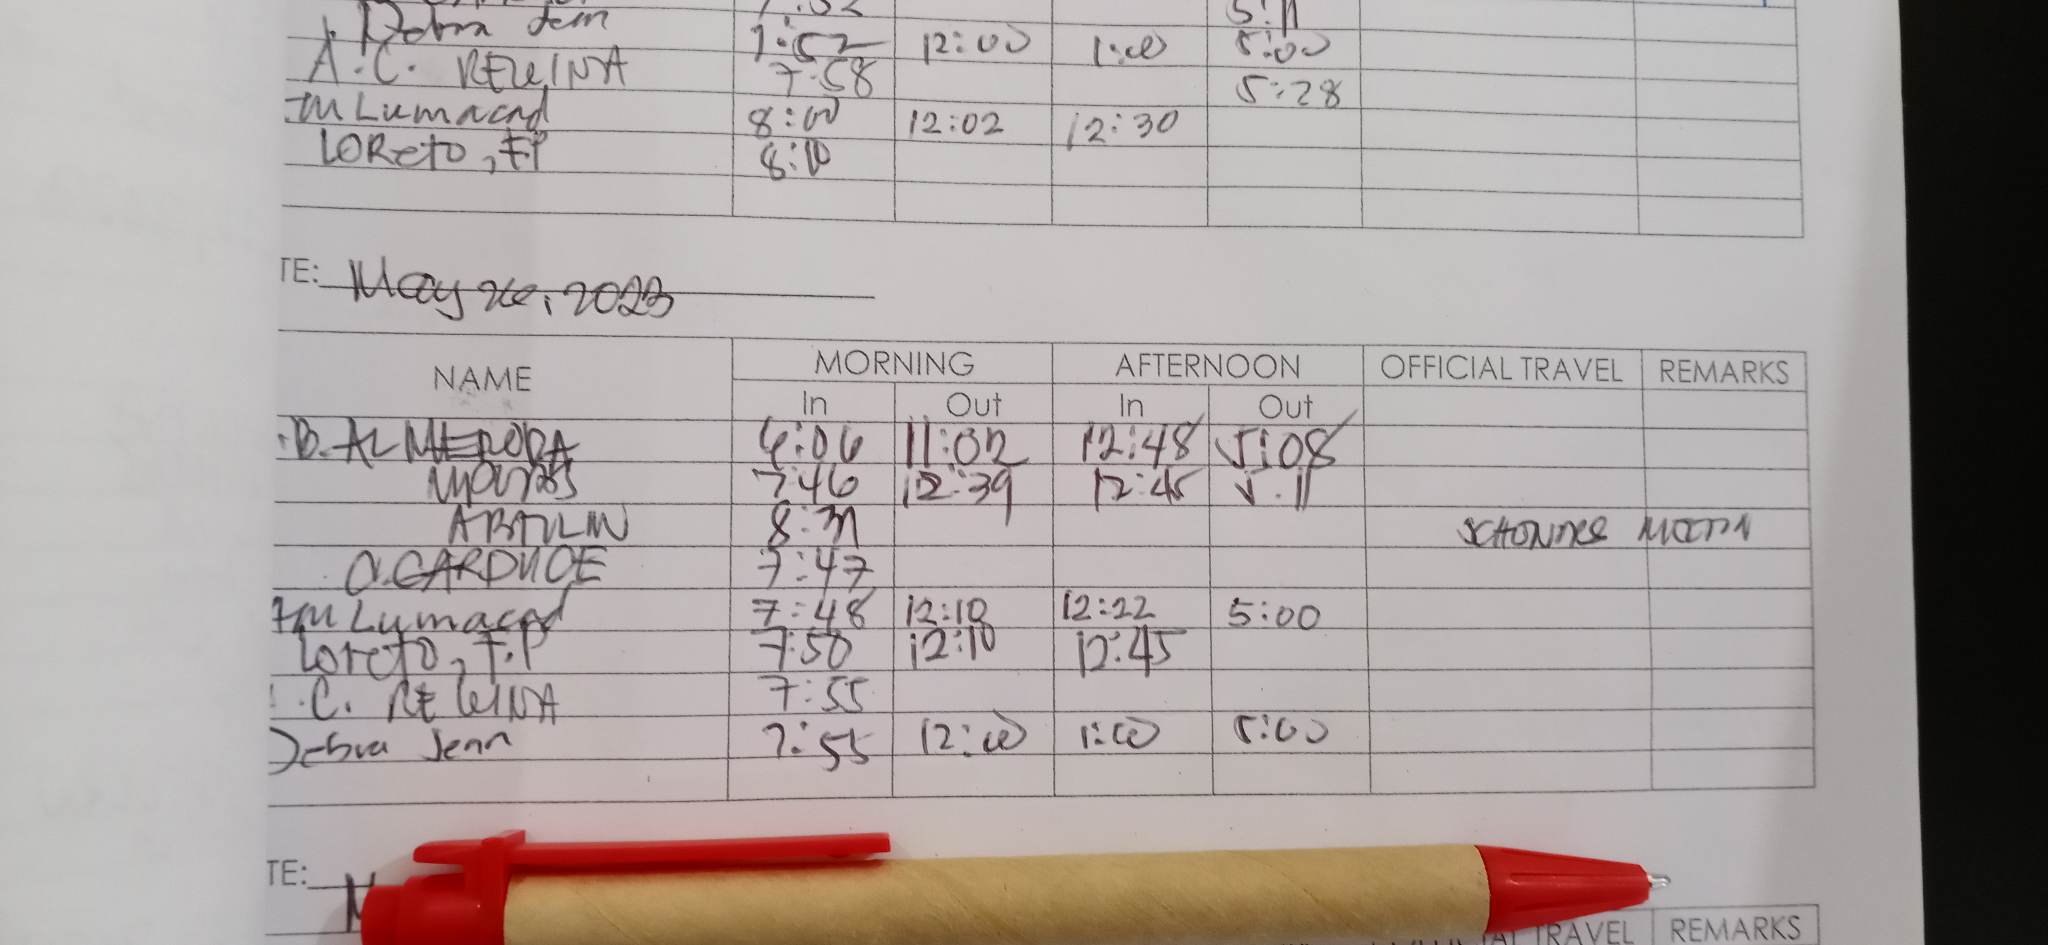 Debra Jenn 7:52 12:00 1:00 5:00
A.C. REWINA 7:58 5:28
Lumacad 8:00 12:02 12:30
LOReto, F.P 8:10
TE: May 26, 2023
NAME MORNING AFTERNOON OFFICIAL TRAVEL REMARKS
In Out In Out
B. ALMERORA 6:06 11:02 12:48 5:08
7:46 12:39 12:45 5:11
8:31
O. GARDUCE 7:47
Lumacad 7:48 12:10 12:22 5:00
Loreto, F.P 7:50 12:10 12:45
.C. REWINA 7:55
Debra Jenn 7:55 12:00 1:00 5:00
TE:
TRAVEL REMARKS